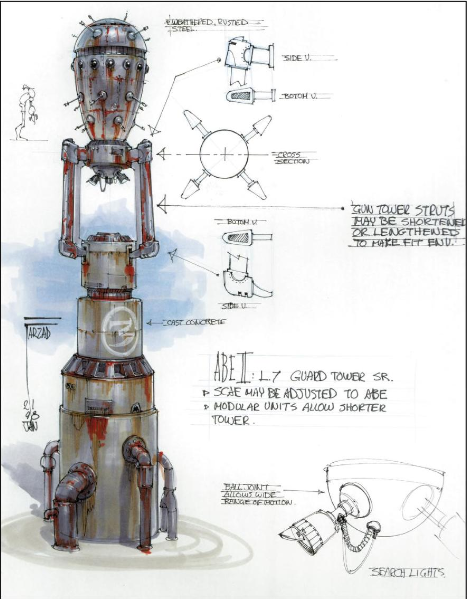 WEATHERED, RUSTED
STEEL.
SIDE V.
BOTOM V.
CROSS
SECTION
GUN TOWER STRUTS
MAY BE SHORTENED
OR LENGTHENED
TO MAKE FIT ENV.
BOTOM V.
SIDE V.
CAST CONCRETE
TARZAD
21
98
JAN
ABE II: L.7 GUARD TOWER SR.
SCAE MAY BE ADJUSTED TO ABE
MODULAR UNITS ALLOW SHORTER
TOWER.
BALL JOINT
ALLOWS WIDE
RANGE OF MOTION.
SEARCH LIGHTS.